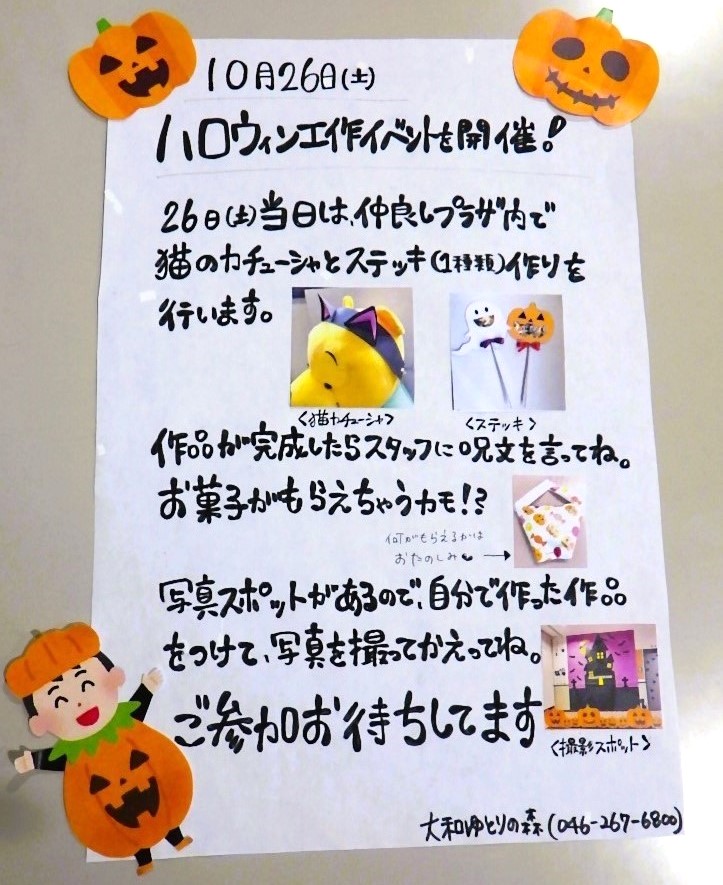 10月26日(土)
ハロウィン工作イベントを開催!
26日(土)当日は、仲良しプラザ内で
猫のカチューシャとステッキ(1種類)作りを
行います。
<猫カチューシャ>
<ステッキ>
作品が完成したらスタッフに呪文を言ってね。
お菓子がもらえちゃうカモ!?
何がもらえるかは
おたのしみ♥→
写真スポットがあるので、自分で作った作品
をつけて、写真を撮ってかえってね。
ご参加お待ちしてます
<撮影スポット>
大和ゆとりの森(046-267-6800)